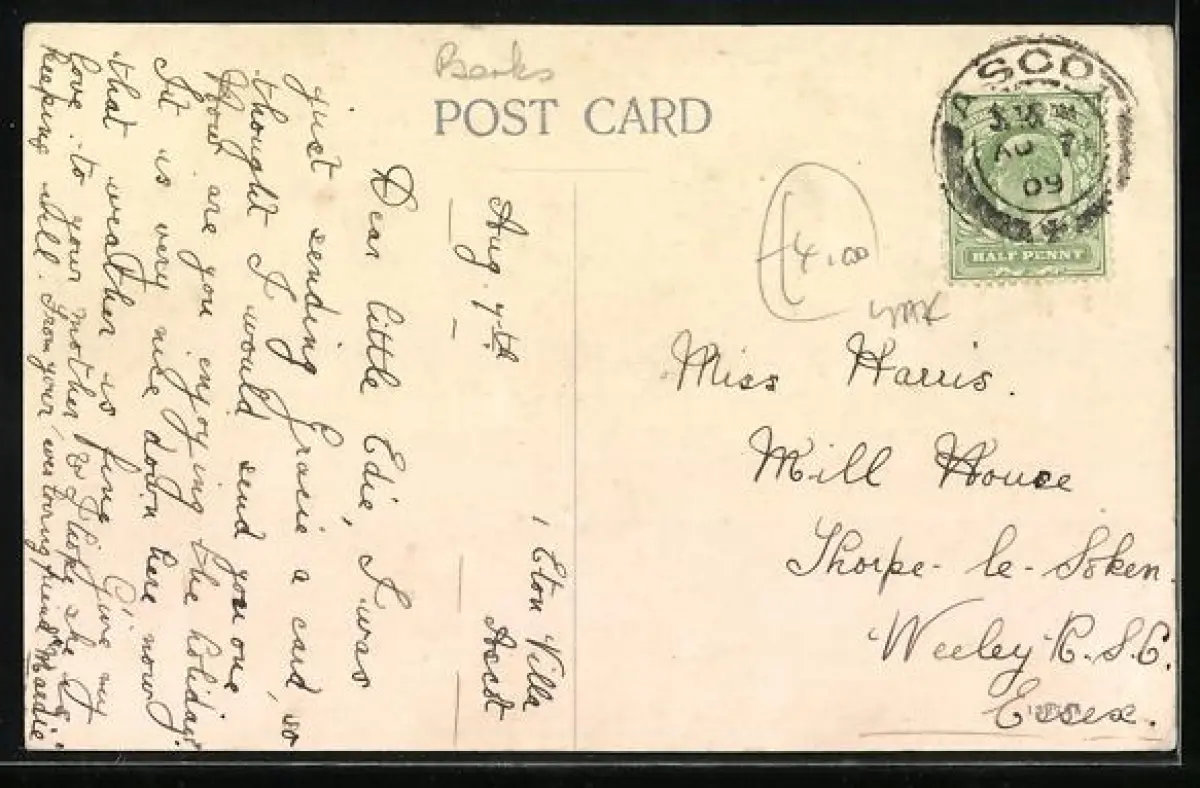 Berks
POST CARD
ASCOT
AU 7
09
HALF PENNY
4.00
Miss Harris.
Mill House
Thorpe-le-Soken
Weeley R.S.O.
Essex.
1 Eton Villa
Ascot
Aug. 7th
Dear little Edie, I was
just sending Gracie a card, so
thought I would send you one
How are you enjoying the holidays
It is very nice down here now
that weather is fine. Give my
love to your mother & I hope she is
keeping well. From your ever loving friend "Maedie"